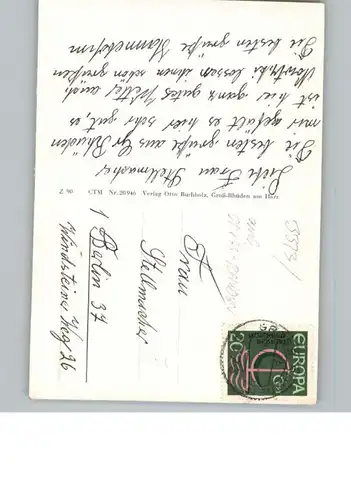 Liebe Frau Stellmacher
Die besten grüße aus Gr Rhüden
mir gefült es hier sehr gut, es
ist hier ganz gutes Wetter auch
lassen ihnen schön grüßen
Die besten grüße
Z 90 CTM Nr. 20946 Verlag Otto Buchholz, Groß-Rhüden am Harz
Frau
Stellmacher
1 Berlin 37
Weg 26
EUROPA
20
DEUTSCHE
BUNDESPOST